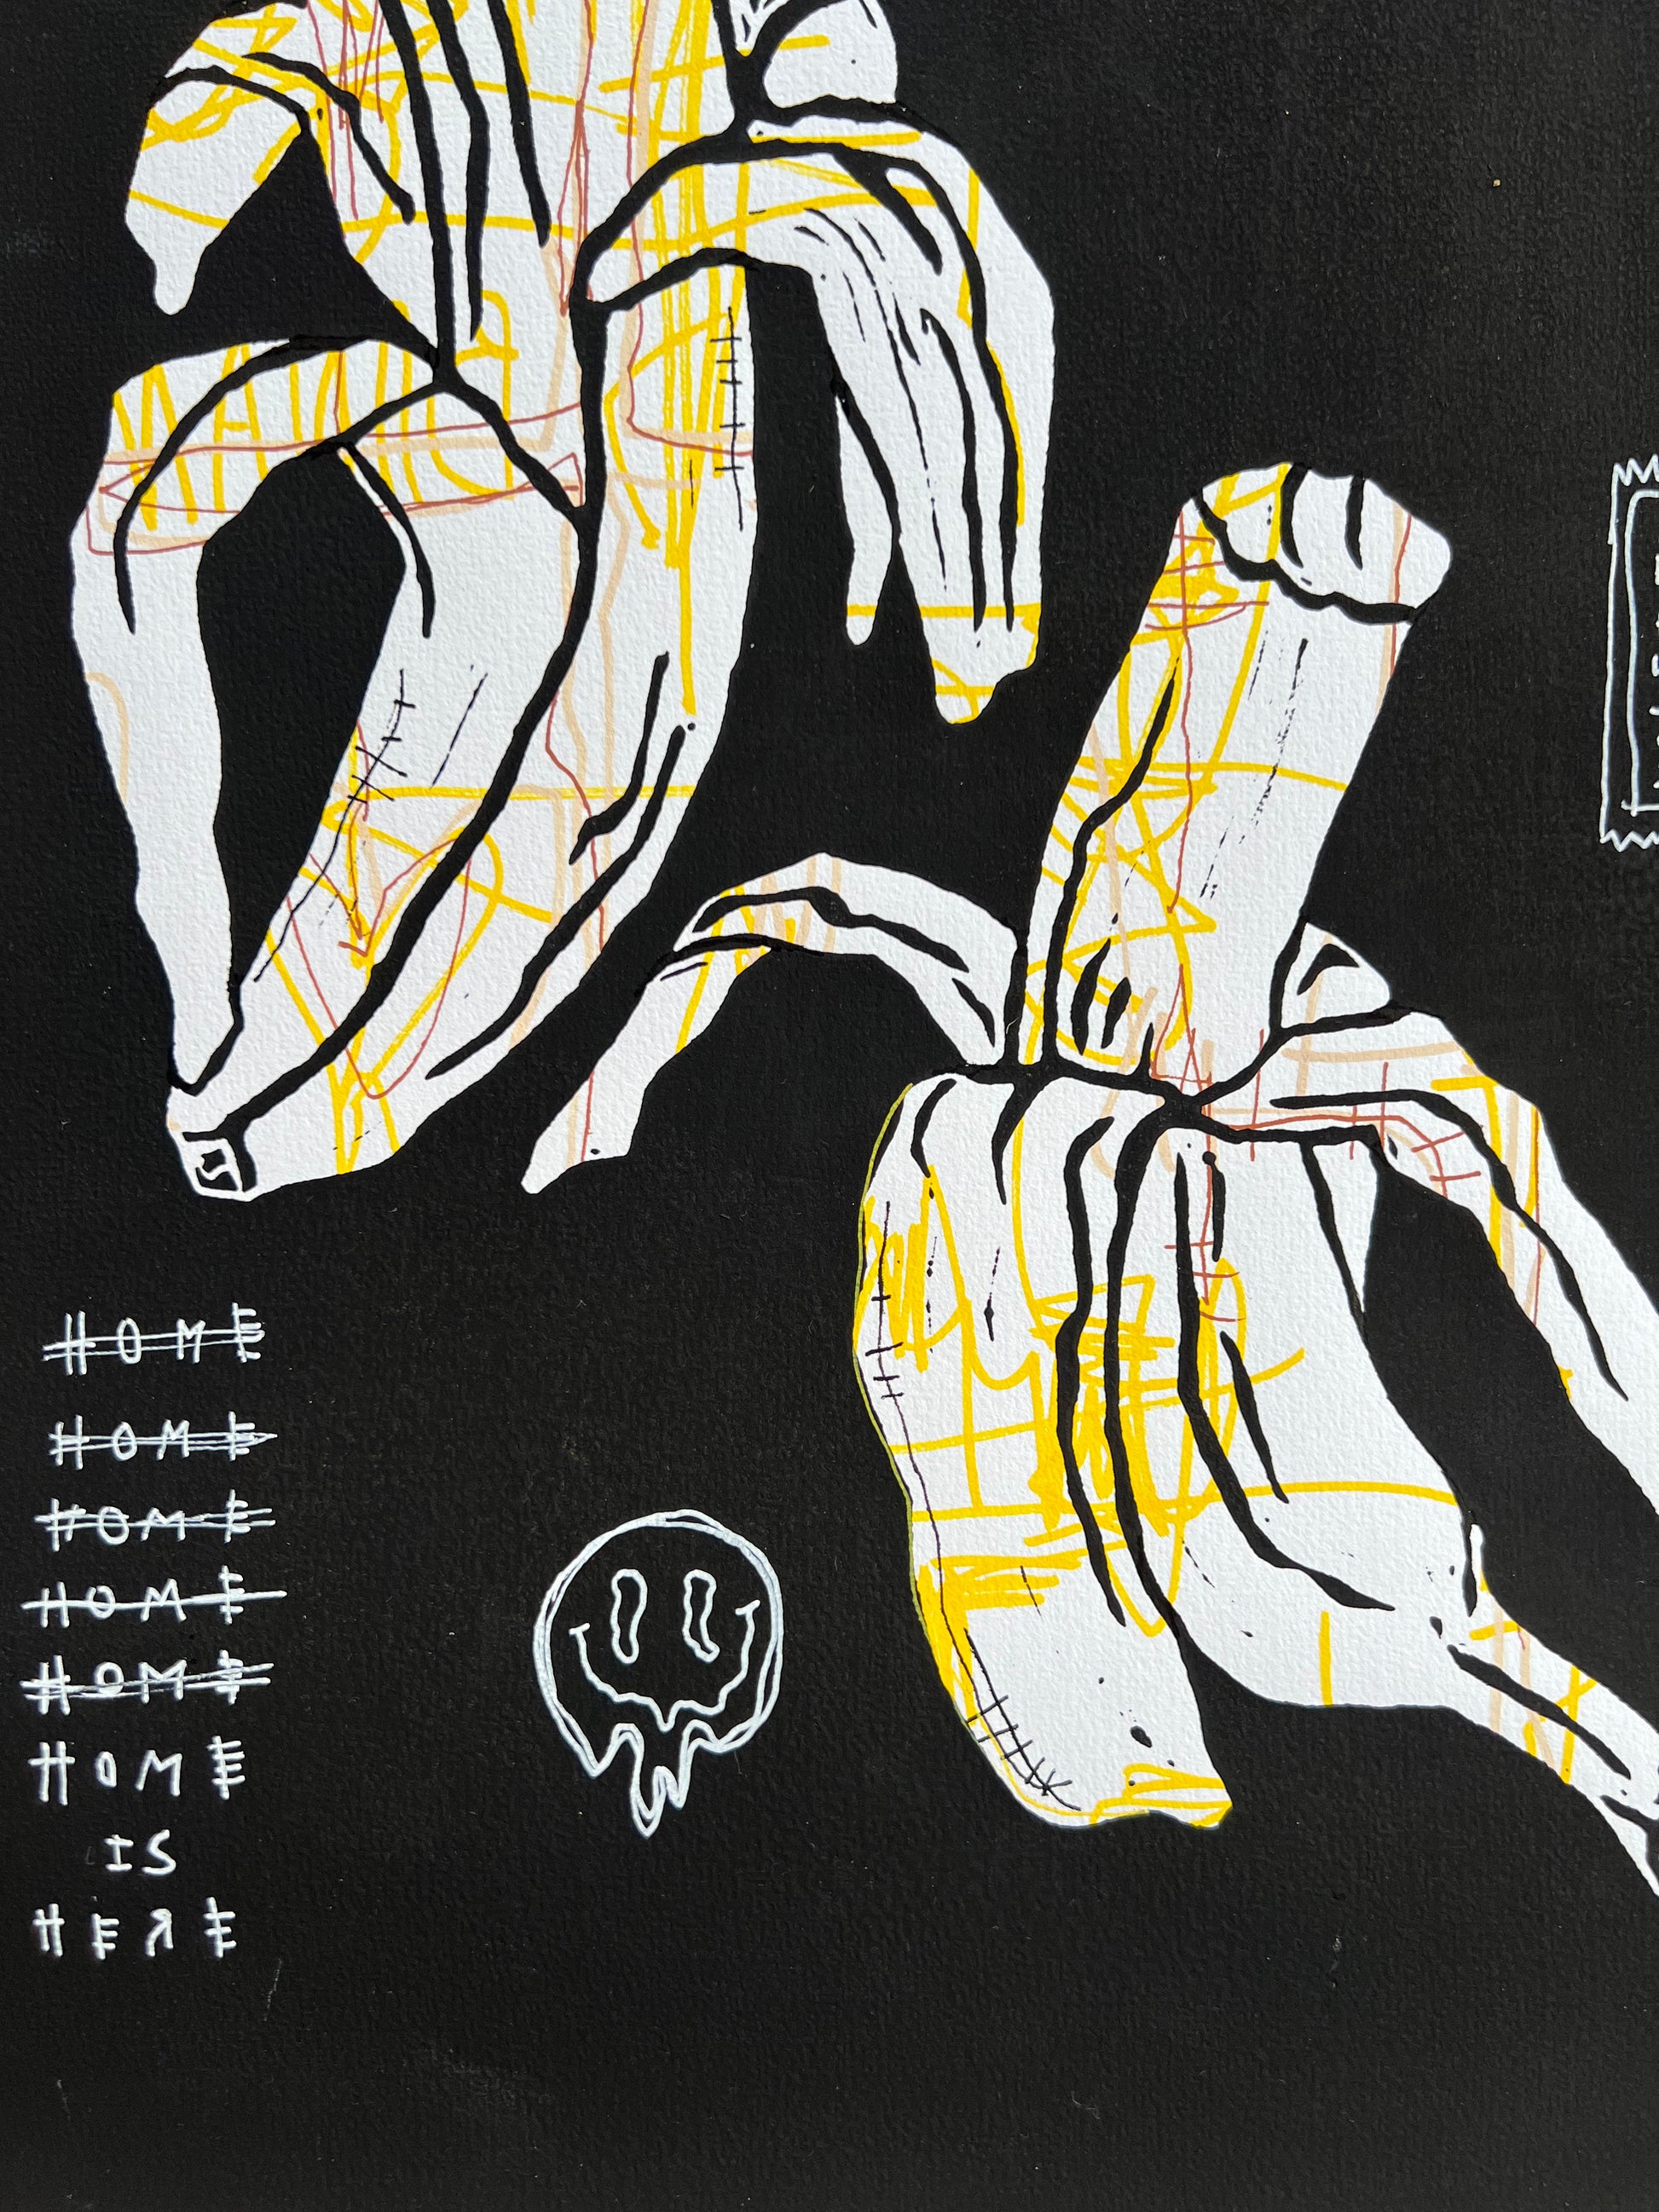 HOME
HOME
HOME
HOME
HOME
HOME
IS
HERE